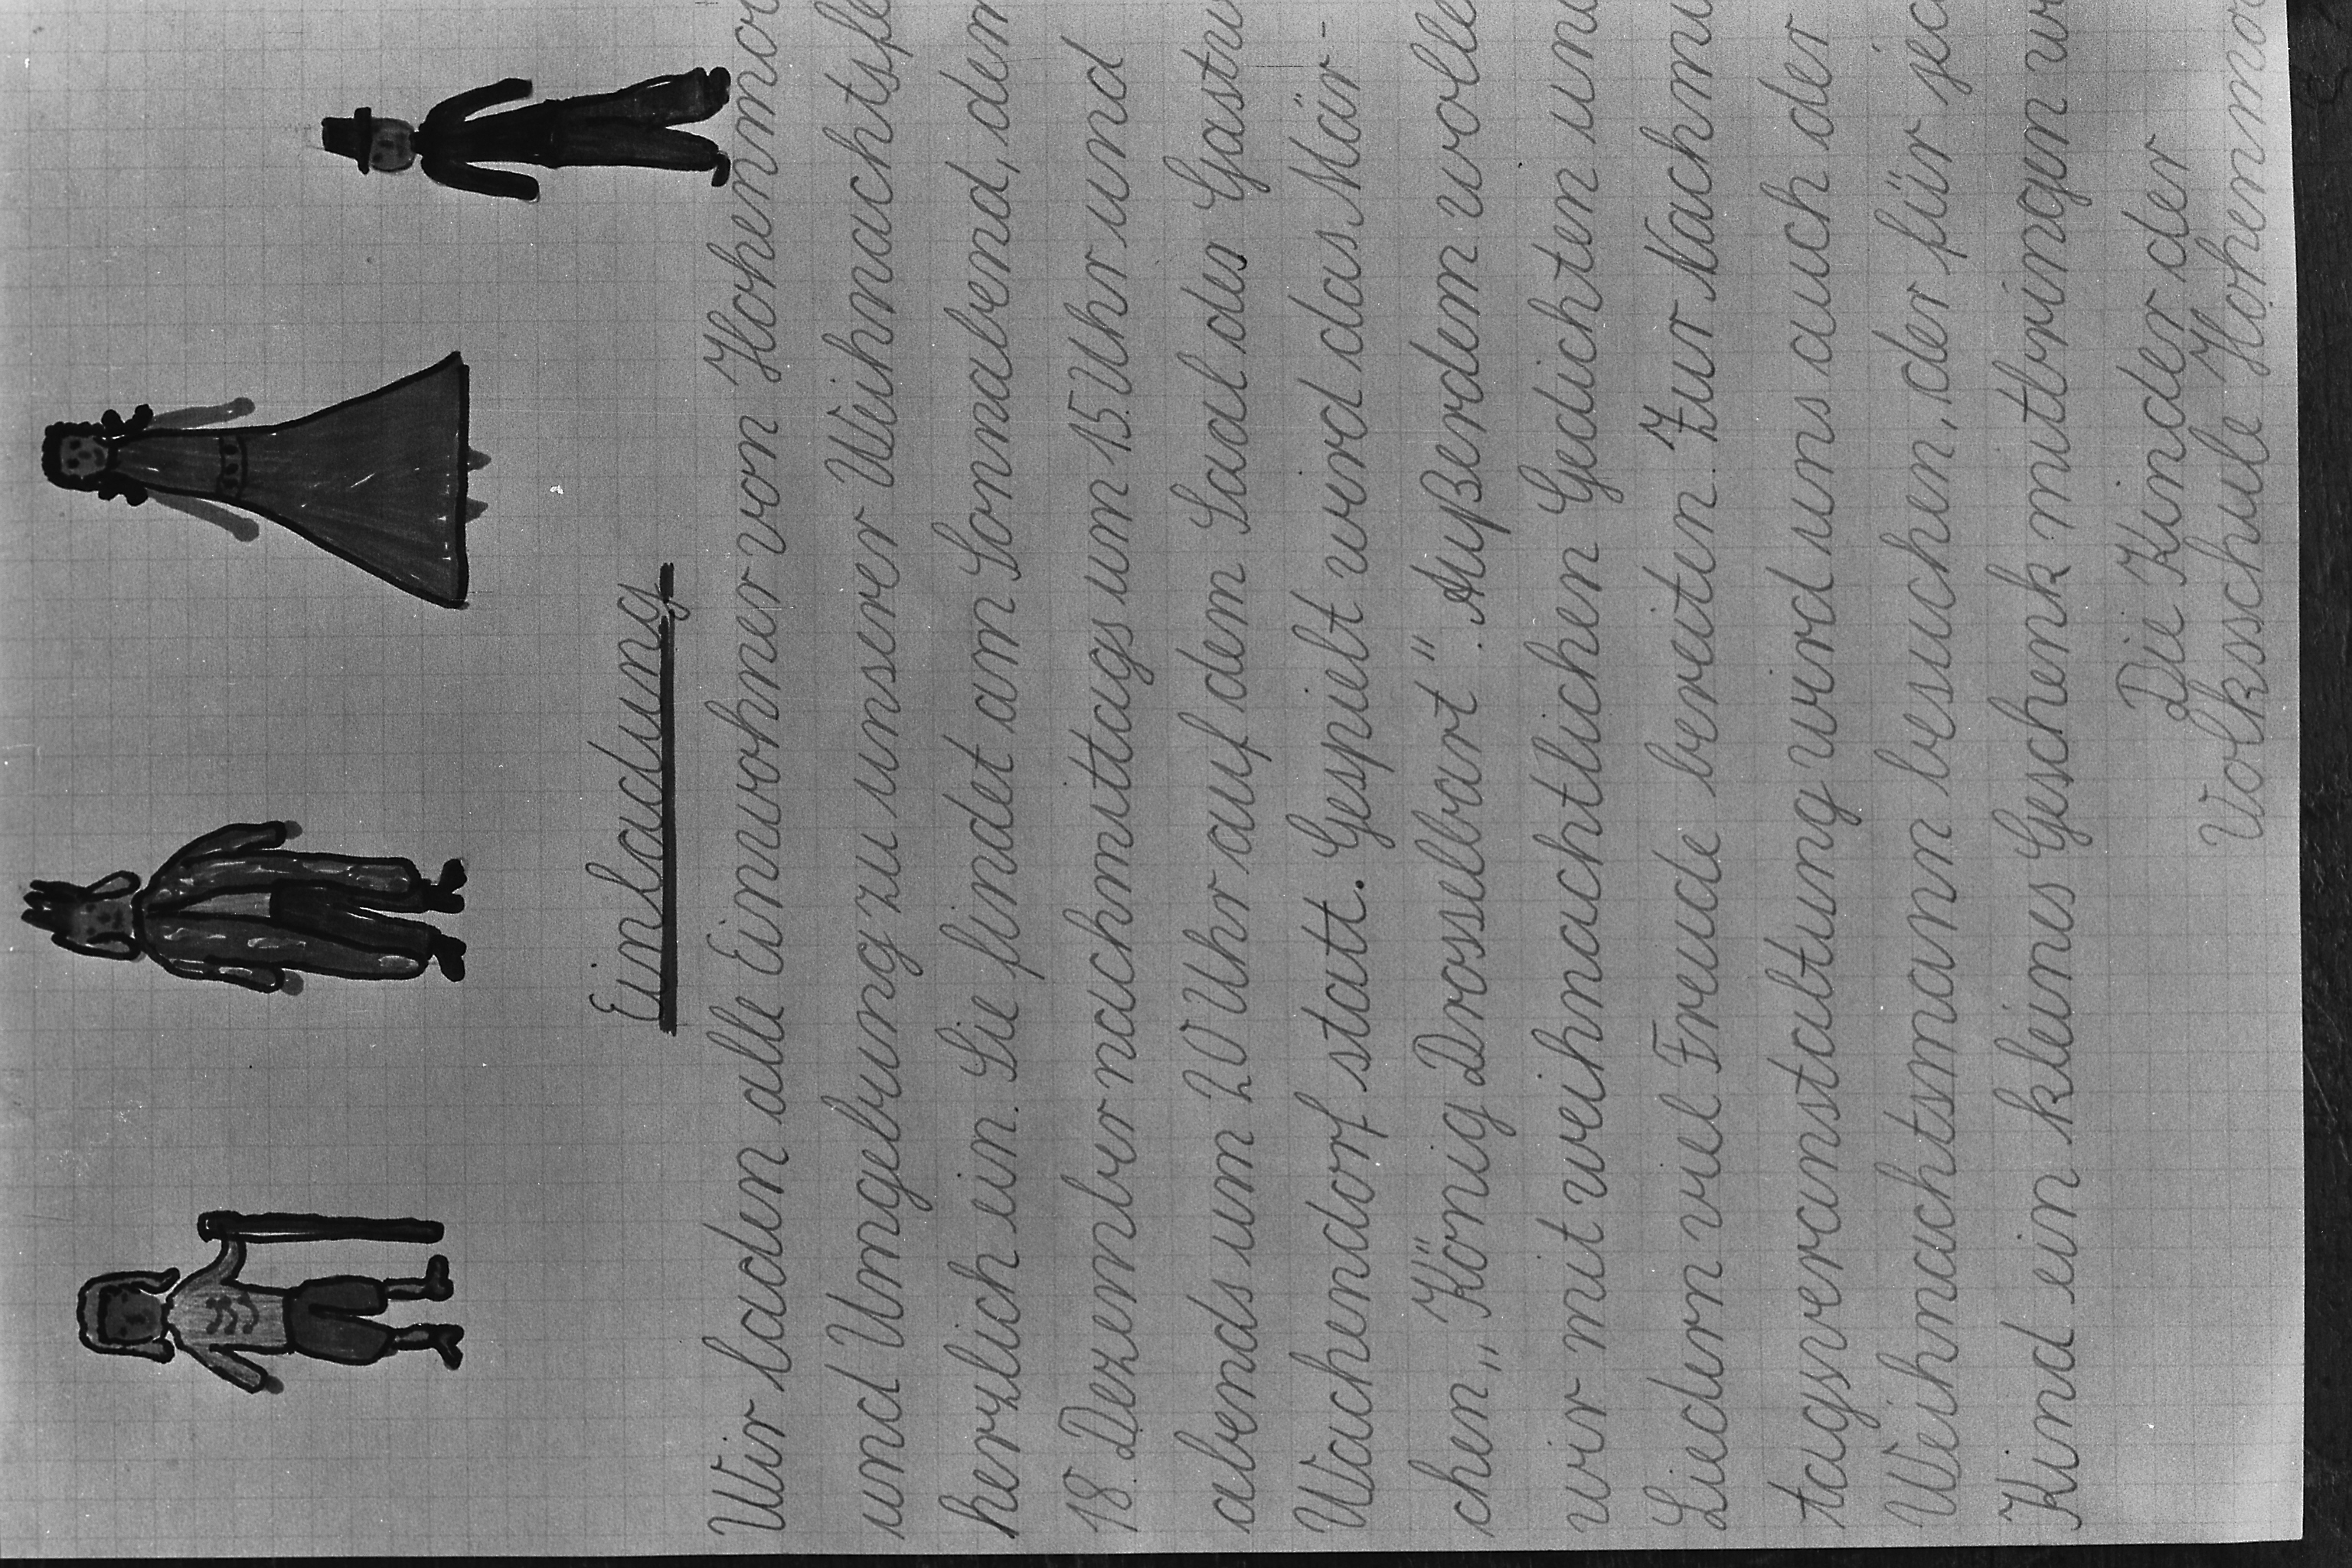 Einladung
Wir laden alle Einwohner von Hohenmoo
und Umgebung zu unserer Weihnachtsfe
herzlich ein. Sie findet am Sonnabend, dem
18. Dezember nachmittags um 15 Uhr und
abends um 20 Uhr auf dem Saal der Gastw
Wachendorf statt. Gespielt wird das Mär-
chen „König Drosselbart". Außerdem wolle
wir mit weihnachtlichen Gedichten und
Liedern viel Freude bereiten. Zur Nachmi
tagsveranstaltung wird uns auch der
Weihnachtsmann besuchen, der für jed
Kind ein kleines Geschenk mitbringen w
Die Kinder der
Volksschule Hohenmoo